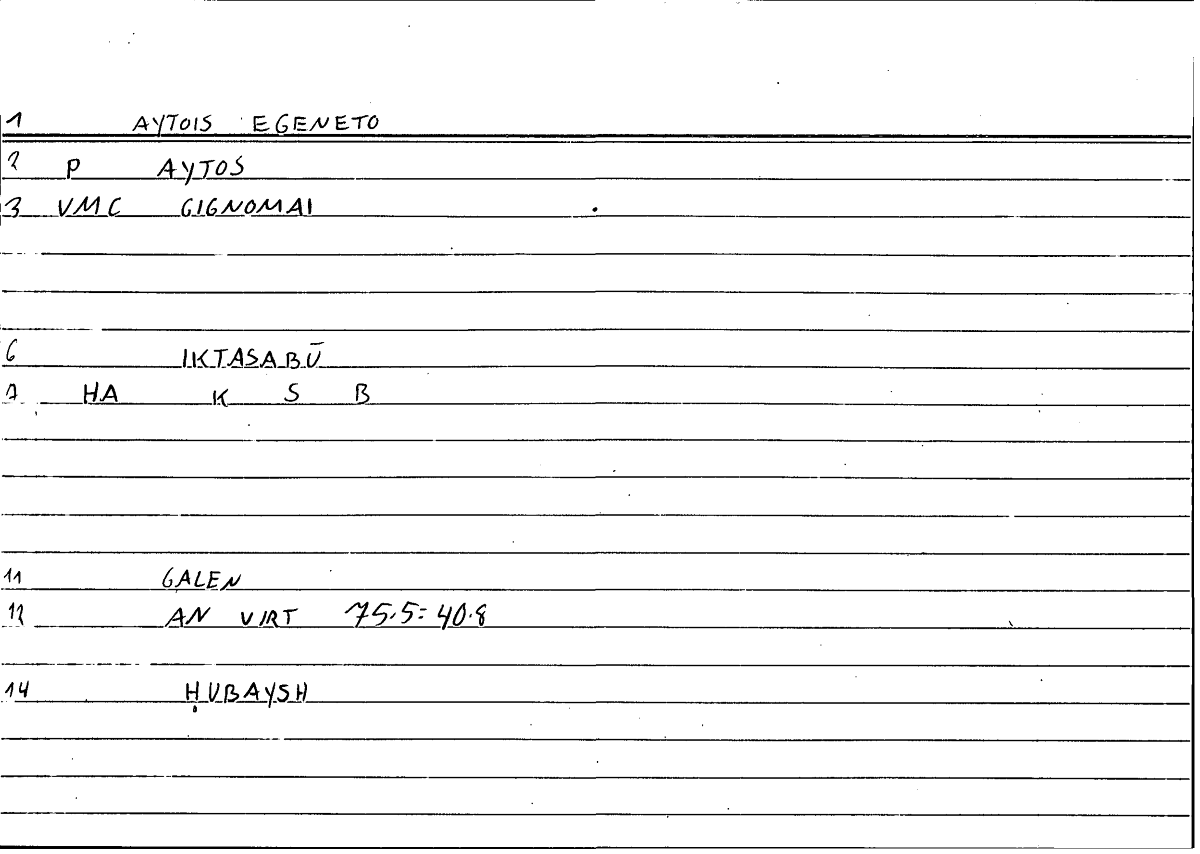 1 AYTOIS EGENETO
2 P AYTOS
3 VMC GIGNOMAI
6 IKTASABŪ
7 HA K S B
11 GALEN
12 AN VIRT 75.5=40.8
14 ḤUBAYSH